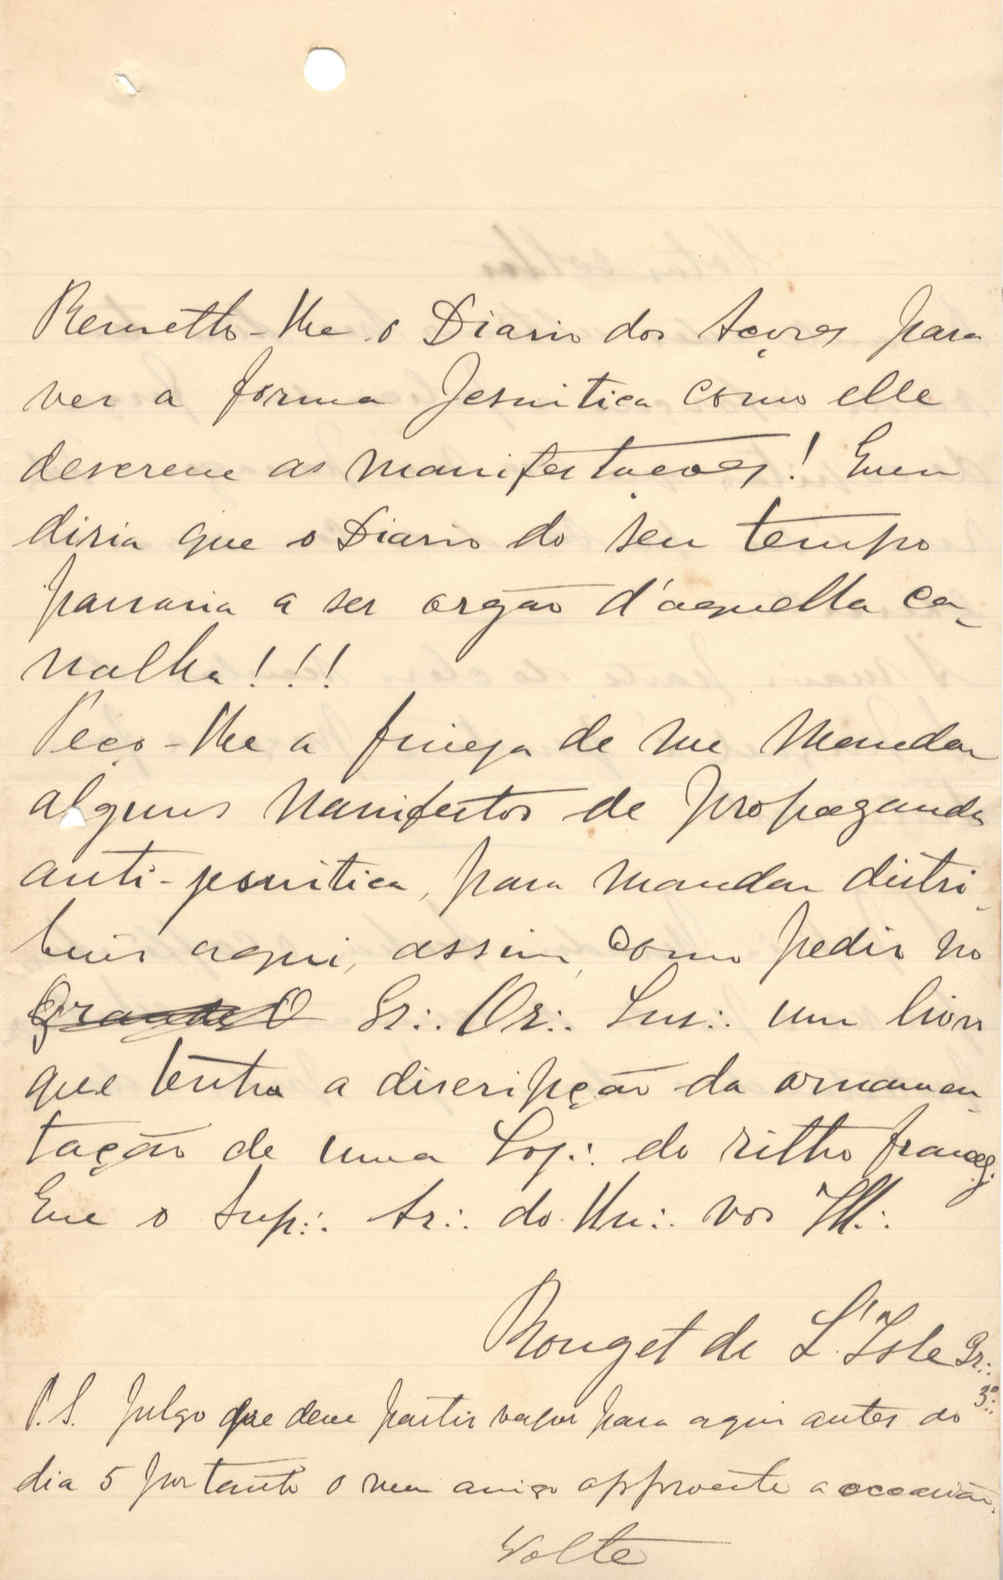 Remetto-lhe o Diario dos Açores para
ver a forma Jesuitica como elle
descreve as manifestações! Quem
diria que o Diario do seu tempo
passaria a ser orgão d'aquella ca-
nalha!!!
Peço-lhe a fineza de me mandar
alguns manifestos de propaganda
anti-jesuitica, para mandar distri-
buir aqui, assim como pedir no
Grande O Gr∴ Or∴ Lus∴ um livro
que tenha a discripção da ornamen-
tação de uma Loj∴ do ritho francez.
Que o Sup∴ Ar∴ do Un∴ vos Ill∴
Rouget de L'Isle Gr∴
3º∴
P.S. Julgo que deve partir vapor para aqui antes do
dia 5 portanto o meu amigo approveite a occasião.
Volte